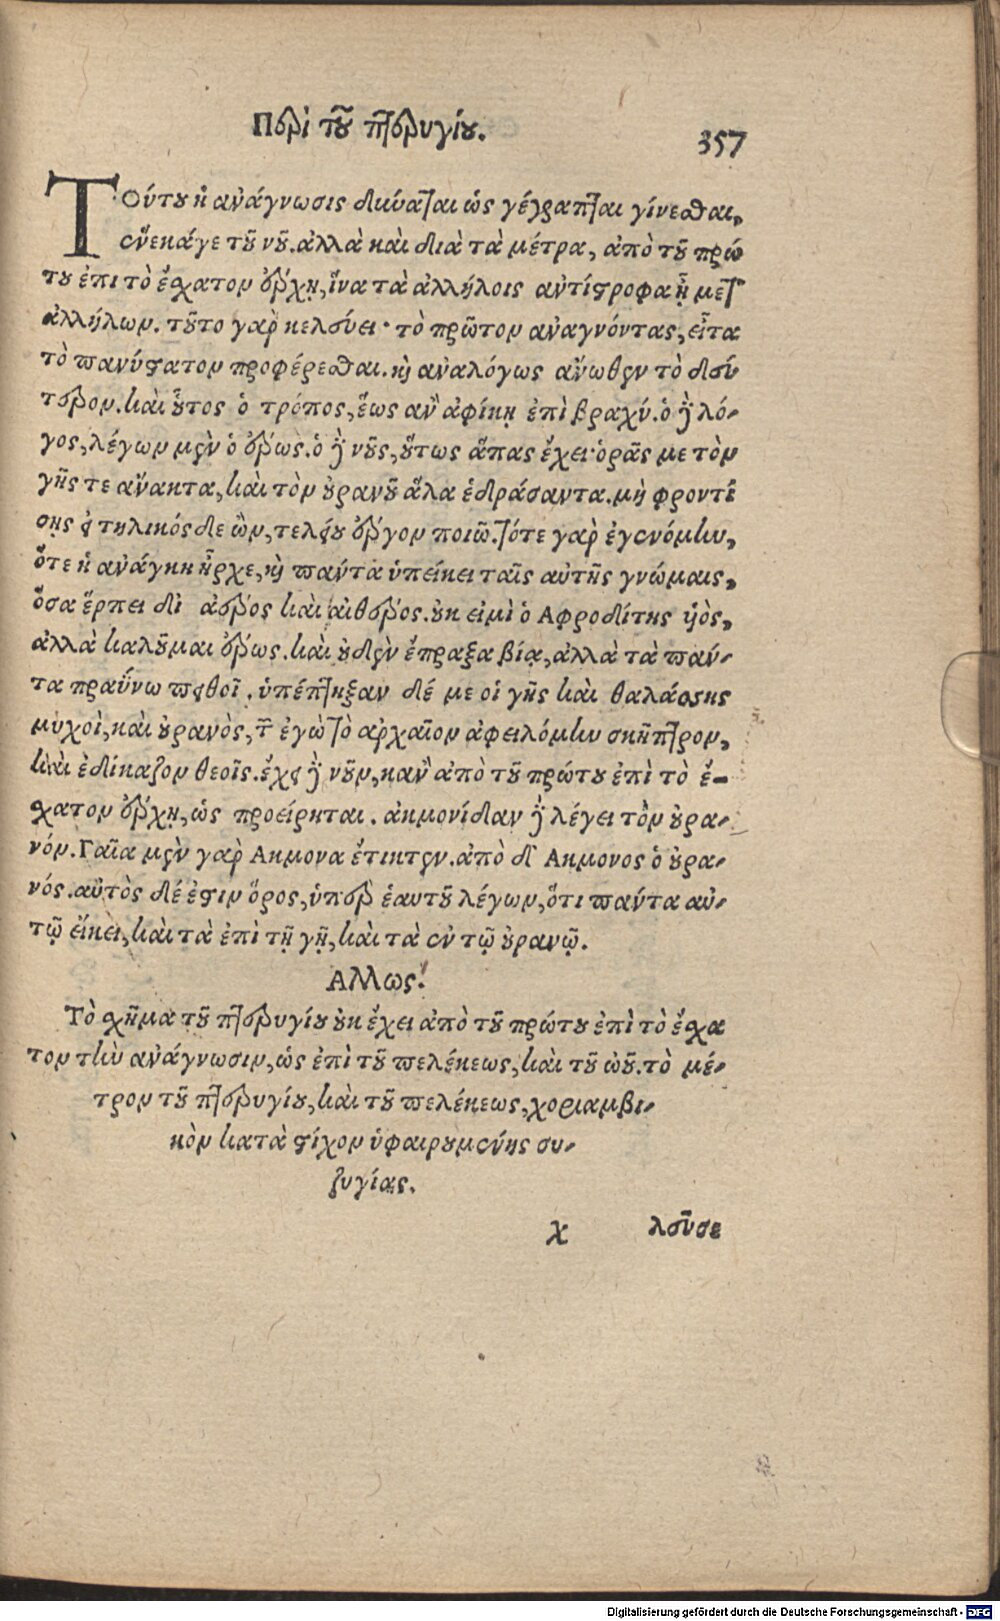 Περὶ τοῦ πτερυγίου.
357
Τούτου ἡ ἀνάγνωσις δύναται ὡς γέγραπται γίνεσθαι,
ἕνεκά γε τοῦ νοῦ. ἀλλὰ καὶ διὰ τὰ μέτρα, ἀπὸ τοῦ πρώ
του ἐπὶ τὸ ἔσχατον ἔρχῃ, ἵνα τὰ ἀλλήλοις ἀντίστροφα ᾖ μετ'
ἀλλήλων. τοῦτο γὰρ κελεύει· τὸ πρῶτον ἀναγνόντας, εἶτα
τὸ πανύστατον προφέρεσθαι. καὶ ἀναλόγως ἄνωθεν τὸ δεύ
τερον. καὶ οὗτος ὁ τρόπος, ἕως ἂν ἀφίκῃ ἐπὶ βραχύ. ὁ δὲ λό-
γος, λέγων μὲν ὁ ἔρως. ὁ δὲ νοῦς, οὕτως ἅπας ἔχει· ὁρᾷς με τὸν
γῆς τε ἄνακτα, καὶ τὸν οὐρανοῦ ἅλα ἑδράσαντα. μὴ φροντί
σῃς εἰ τηλικόσδε ὢν, τελείου ἔργον ποιῶ. τότε γὰρ ἐγενόμην,
ὅτε ἡ ἀνάγκη ἦρχε, καὶ πάντα ὑπείκει ταῖς αὐτῆς γνώμαις,
ὅσα ἕρπει δι' ἀέρος καὶ αἰθέρος. οὐκ εἰμὶ ὁ Αφροδίτης υἱὸς,
ἀλλὰ καλοῦμαι ἔρως. καὶ οὐδὲν ἔπραξα βίᾳ, ἀλλὰ τὰ πάν-
τα πραΰνω πειθοῖ. ὑπέπτηξαν δέ με οἱ γῆς καὶ θαλάσσης
μυχοὶ, καὶ οὐρανὸς, τῶν ἐγὼ τὸ ἀρχαῖον ἀφειλόμην σκῆπτρον,
καὶ ἐδίκαζον θεοῖς. ἔχει δὲ νοῦν, κἂν ἀπὸ τοῦ πρώτου ἐπὶ τὸ ἔ-
σχατον ἔρχῃ, ὡς προείρηται. ἀκμονίδαν δὲ λέγει τὸν οὐρα-
νόν. Γαῖα μὲν γὰρ Ακμονα ἔτικτεν. ἀπὸ δ' Ακμονος ὁ οὐρα-
νός. αὐτὸς δέ ἐστιν ὅρος, ὑπὲρ ἑαυτοῦ λέγων, ὅτι πάντα αὐ-
τῷ εἴκει, καὶ τὰ ἐπὶ τῇ γῇ, καὶ τὰ ἐν τῷ οὐρανῷ.
Αλλως.
Τὸ σχῆμα τοῦ πτερυγίου οὐκ ἔχει ἀπὸ τοῦ πρώτου ἐπὶ τὸ ἔσχα
τον τὴν ἀνάγνωσιν, ὡς ἐπὶ τοῦ πελέκεως, καὶ τοῦ ὠοῦ. τὸ μέ-
τρον τοῦ πτερυγίου, καὶ τοῦ πελέκεως, χοριαμβι-
κὸν κατὰ στίχον ὑφαιρουμένης συ-
ζυγίας.
χ λεῦσε
Digitalisierung gefördert durch die Deutsche Forschungsgemeinschaft - DFG